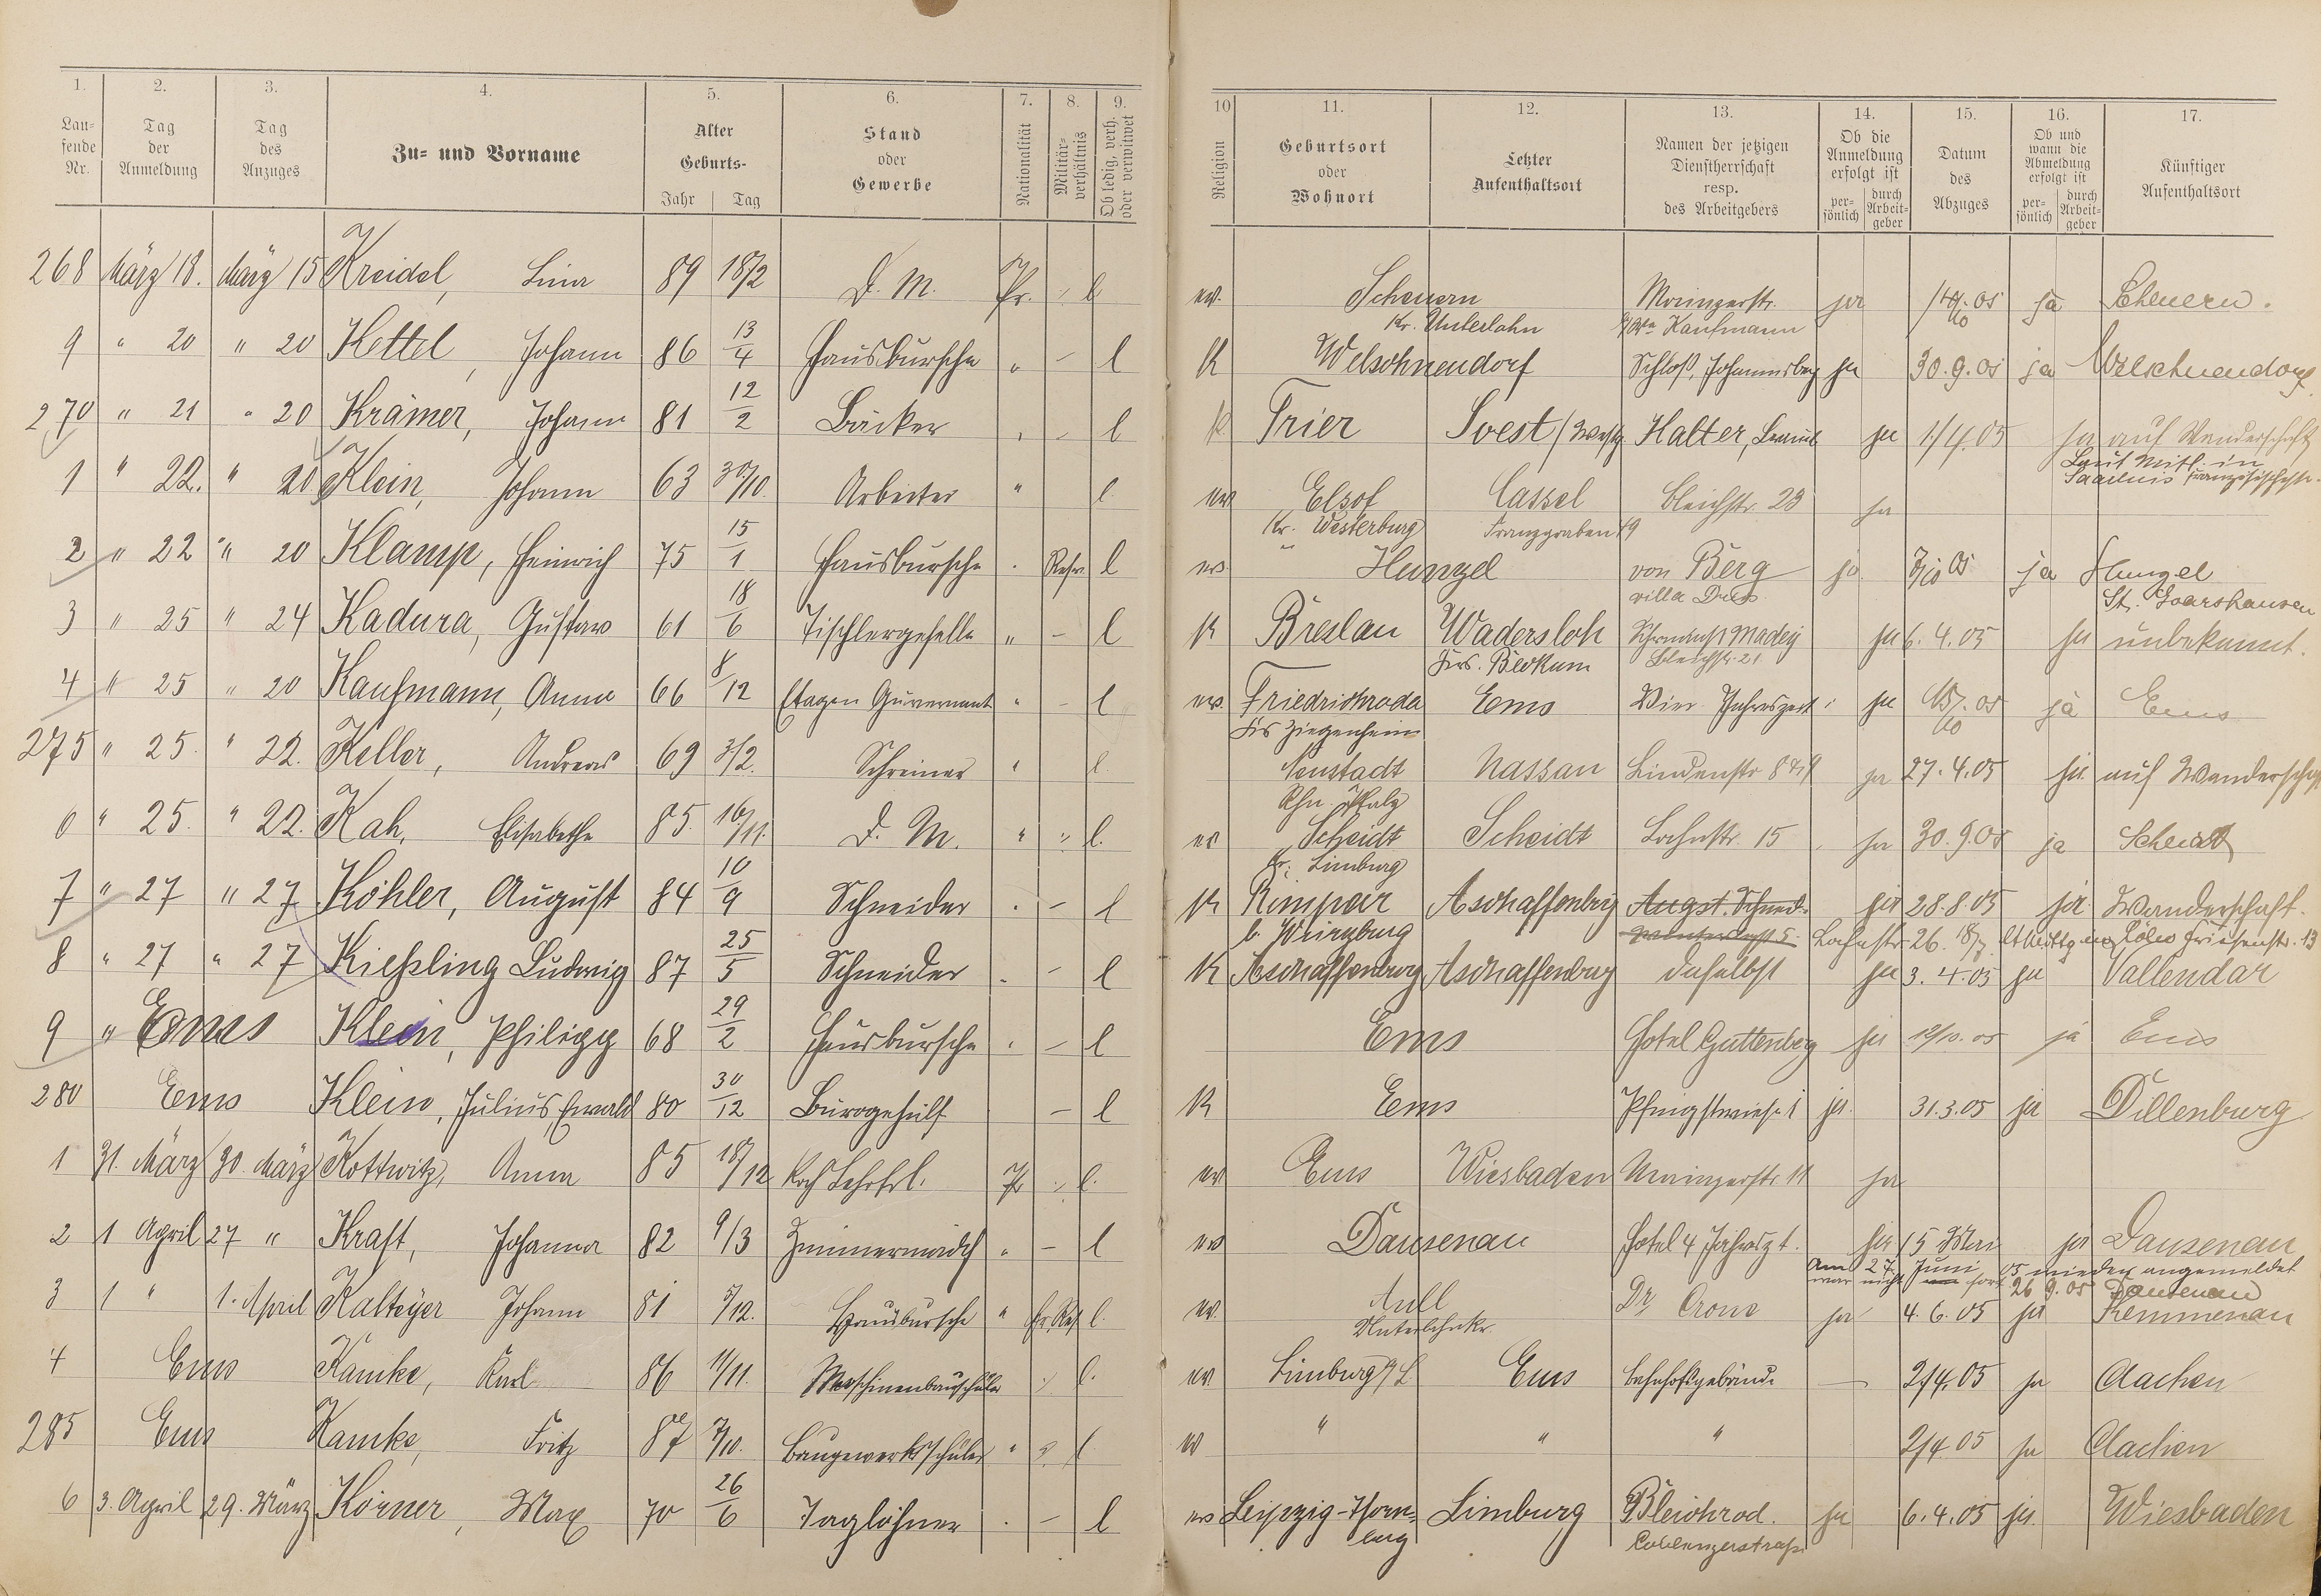 1. 2. 3. 4. 5. 6. 7. 8. 9. 10 11. 12. 13. 14. 15. 16. 17.
Lau-fende Nr. Tag der Anmeldung Tag des Anzuges Zu- und Vorname Alter Geburts- Jahr Tag Stand oder Gewerbe Nationalität Militär-verhältnis Ob ledig, verh. oder verwitwet Religion Geburtsort oder Wohnort Letzter Aufenthaltsort Namen der jetzigen Dienstherrschaft resp. des Arbeitgebers Ob die Anmeldung erfolgt ist per-sönlich durch Arbeit-geber Datum des Abzuges Ob und wann die Abmeldung erfolgt ist per-sönlich durch Arbeit-geber Künftiger Aufenthaltsort
268 März 18. März 15 Kreidel, Lina 89 18/2 D. M. Pr. l ev. Scheuern Mainzerstr. ja ja Scheuern.
Kr. Unterlahn Kaufmann
9 " 20 " 20 Kettel, Johann 86 13/4 Hausbursche " – l K Welschnendorf Schloß Johannisberg ja 30.9.05 ja Welschnendorf
270 " 21 " 20 Krämer, Johann 81 12/2 Bäcker " – l K Trier Soest (Westf. Halter, ja 1/4.05 ja auf Wanderschaft
Laut Mittl. in
Saarlouis Französischestr.
1 " 22. " 20 Klein, Johann 63 30/10. Arbeiter " l. ev Elsof Cassel Bleichstr. 23 ja
Kr. Westerburg Franzgraben 19
2 " 22 " 20 Klamp, Heinrich 75 15/1 Hausbursche " Resev. l ev. Hunzel von Berg ja 05 ja Hunzel
villa St. Goarshausen
3 " 25 " 24 Kadura, Gustav 61 18/6 Tischlergeselle " – l K Breslau Wadersloh Madey ja 6.4.05 ja unbekannt.
Krs. Beckum Bleichstr. 21
4 " 25 " 20 Kaufmann, Anna 66 8/12 Etagen Guvernant " – l ev. Friedrichroda Ems Vier Jahreszeit. ja ja Ems
Krs Ziegenhein
275 " 25. " 22. Keller, Andreas 69 3/2. Schreiner " l. Neustadt Nassau Lindenstr ja 27.4.05 ja auf Wanderschaft
Rhn Pfalz
6 " 25. " 22. Kah, Elisabethe 85. 16/11. D. M. " l. ev Scheidt Scheidt Lahnstr. 15 ja 30.9.05 ja Scheidt
Kr. Limburg
7 " 27 " 27 Köhler, August 84 10/9 Schneider " – l K Rimpar Aschaffenburg Augst. Schneid. ja 28.8.05 ja Wanderschaft.
b. Würzburg Lahnstr. 26. 18/9 lt Mittg. Cöln Friesenstr. 13
8 " 27 " 27 Kießling Ludwig 87 25/5 Schneider " – l K Aschaffenburg Aschaffenburg daselbst ja 3.4.05 ja Vallendar
9 " Ems Klein, Philipp 68 29/2 Hausbursche " – l Ems Hotel Guttenberg ja 12/10.05 ja Ems
280 Ems Klein, Julius Ewald 80 30/12 Bürogehülf – l K Ems Pfingstwiese 1 ja. 31.3.05 ja Dillenburg
1 31. März 30. März Kottwitz, Anna 85 18/12 Koch Lehrfrl. Pr l. ev Ems Wiesbaden Mainzerstr. 11 ja
2 1 April 27 " Kraft, Johanna 82 9/3 Zimmermädch " – l ev Dausenau Hotel 4 Jahreszt. ja 15 Mai ja Dausenau
Am 27. Juni 05 wieder angemeldet
war nicht fort 26.9.05 Dausenau
3 1 " 1. April Kalteyer Johann 81 5/12. Hausbursche " Er. Res l. ev. Aull Dr. Crone ja 4.6.05 ja Kemmenau
Unterlahnkr.
4 Ems Kamke, Karl 86 11/11. Maschinenbauschüler l. ev. Limburg a/L Ems Bahnhofsgebäude – 2/4.05 ja Aachen
285 Ems Kamke, Fritz 87 Baugewerksschüler " l ev " " " 2/4.05 ja Aachen
6 3. April 29. März Körner, Max 70 26/6 Taglöhner " – l ev Leipzig-Thon- Limburg Bleichrod. ja 6.4.05 ja. Wiesbaden
berg Coblenzerstraße